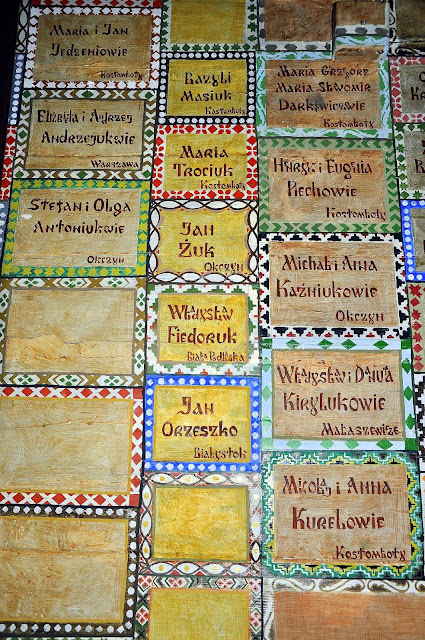 Maria i Jan
Jedzeniowie
Kostomłoty
Elżbieta i Andrzej
Andrzejukwie
Warszawa
Stefan i Olga
Antoniukwie
Okczyn
Bazyli
Masiuk
Kostomłoty
Maria
Trociuk
Kostomłoty
Jan
Żuk
Okczyn
Władysław
Fiedoruk
Biała Podlaska
Jan
Orzeszko
Białystok
Maria Grzegorz
Maria Sławomir
Darkiewiczowie
Kostomłoty
Henryk i Eugenia
Piechowie
Kostomłoty
Michał i Anna
Kaźniukowie
Okczyn
Władysław i Danuta
Kirylukowie
Małaszewicze
Mikołaj i Anna
Kurelowie
Kostomłoty